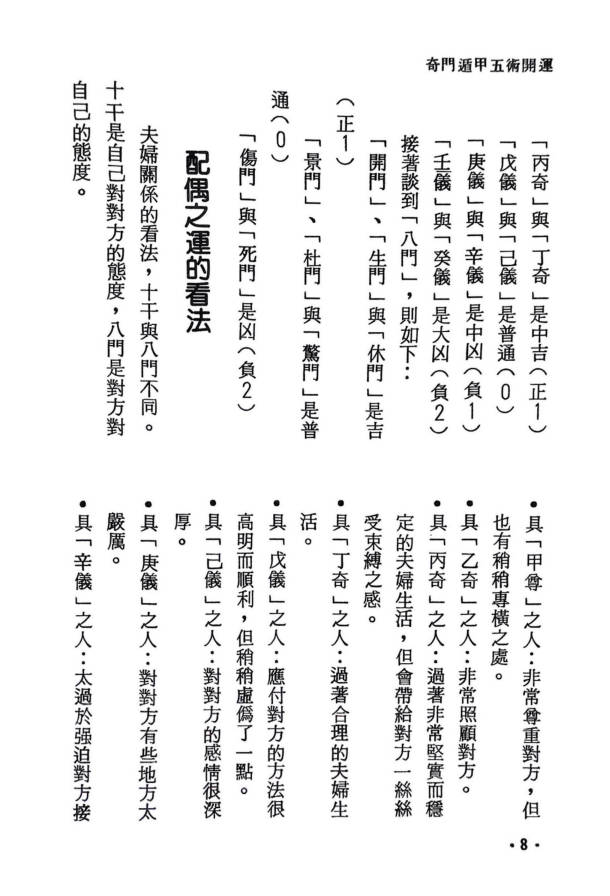 奇門遁甲五術開運
「丙奇」與「丁奇」是中吉(正1)
「戊儀」與「己儀」是普通(0)
「庚儀」與「辛儀」是中凶(負1)
「壬儀」與「癸儀」是大凶(負2)
接著談到「八門」,則如下:
「開門」、「生門」與「休門」是吉
(正1)
「景門」、「杜門」與「驚門」是普
通(0)
「傷門」與「死門」是凶(負2)
配偶之運的看法
夫婦關係的看法,十干與八門不同。
十干是自己對對方的態度,八門是對方對
自己的態度。
•具「甲尊」之人:非常尊重對方,但
也有稍稍專橫之處。
•具「乙奇」之人:非常照顧對方。
•具「丙奇」之人:過著非常堅實而穩
定的夫婦生活,但會帶給對方一絲絲
受束縛之感。
•具「丁奇」之人:過著合理的夫婦生
活。
•具「戊儀」之人:應付對方的方法很
高明而順利,但稍稍虛僞了一點。
•具「己儀」之人:對對方的感情很深
厚。
•具「庚儀」之人:對對方有些地方太
嚴厲。
•具「辛儀」之人:太過於强迫對方接
•8•